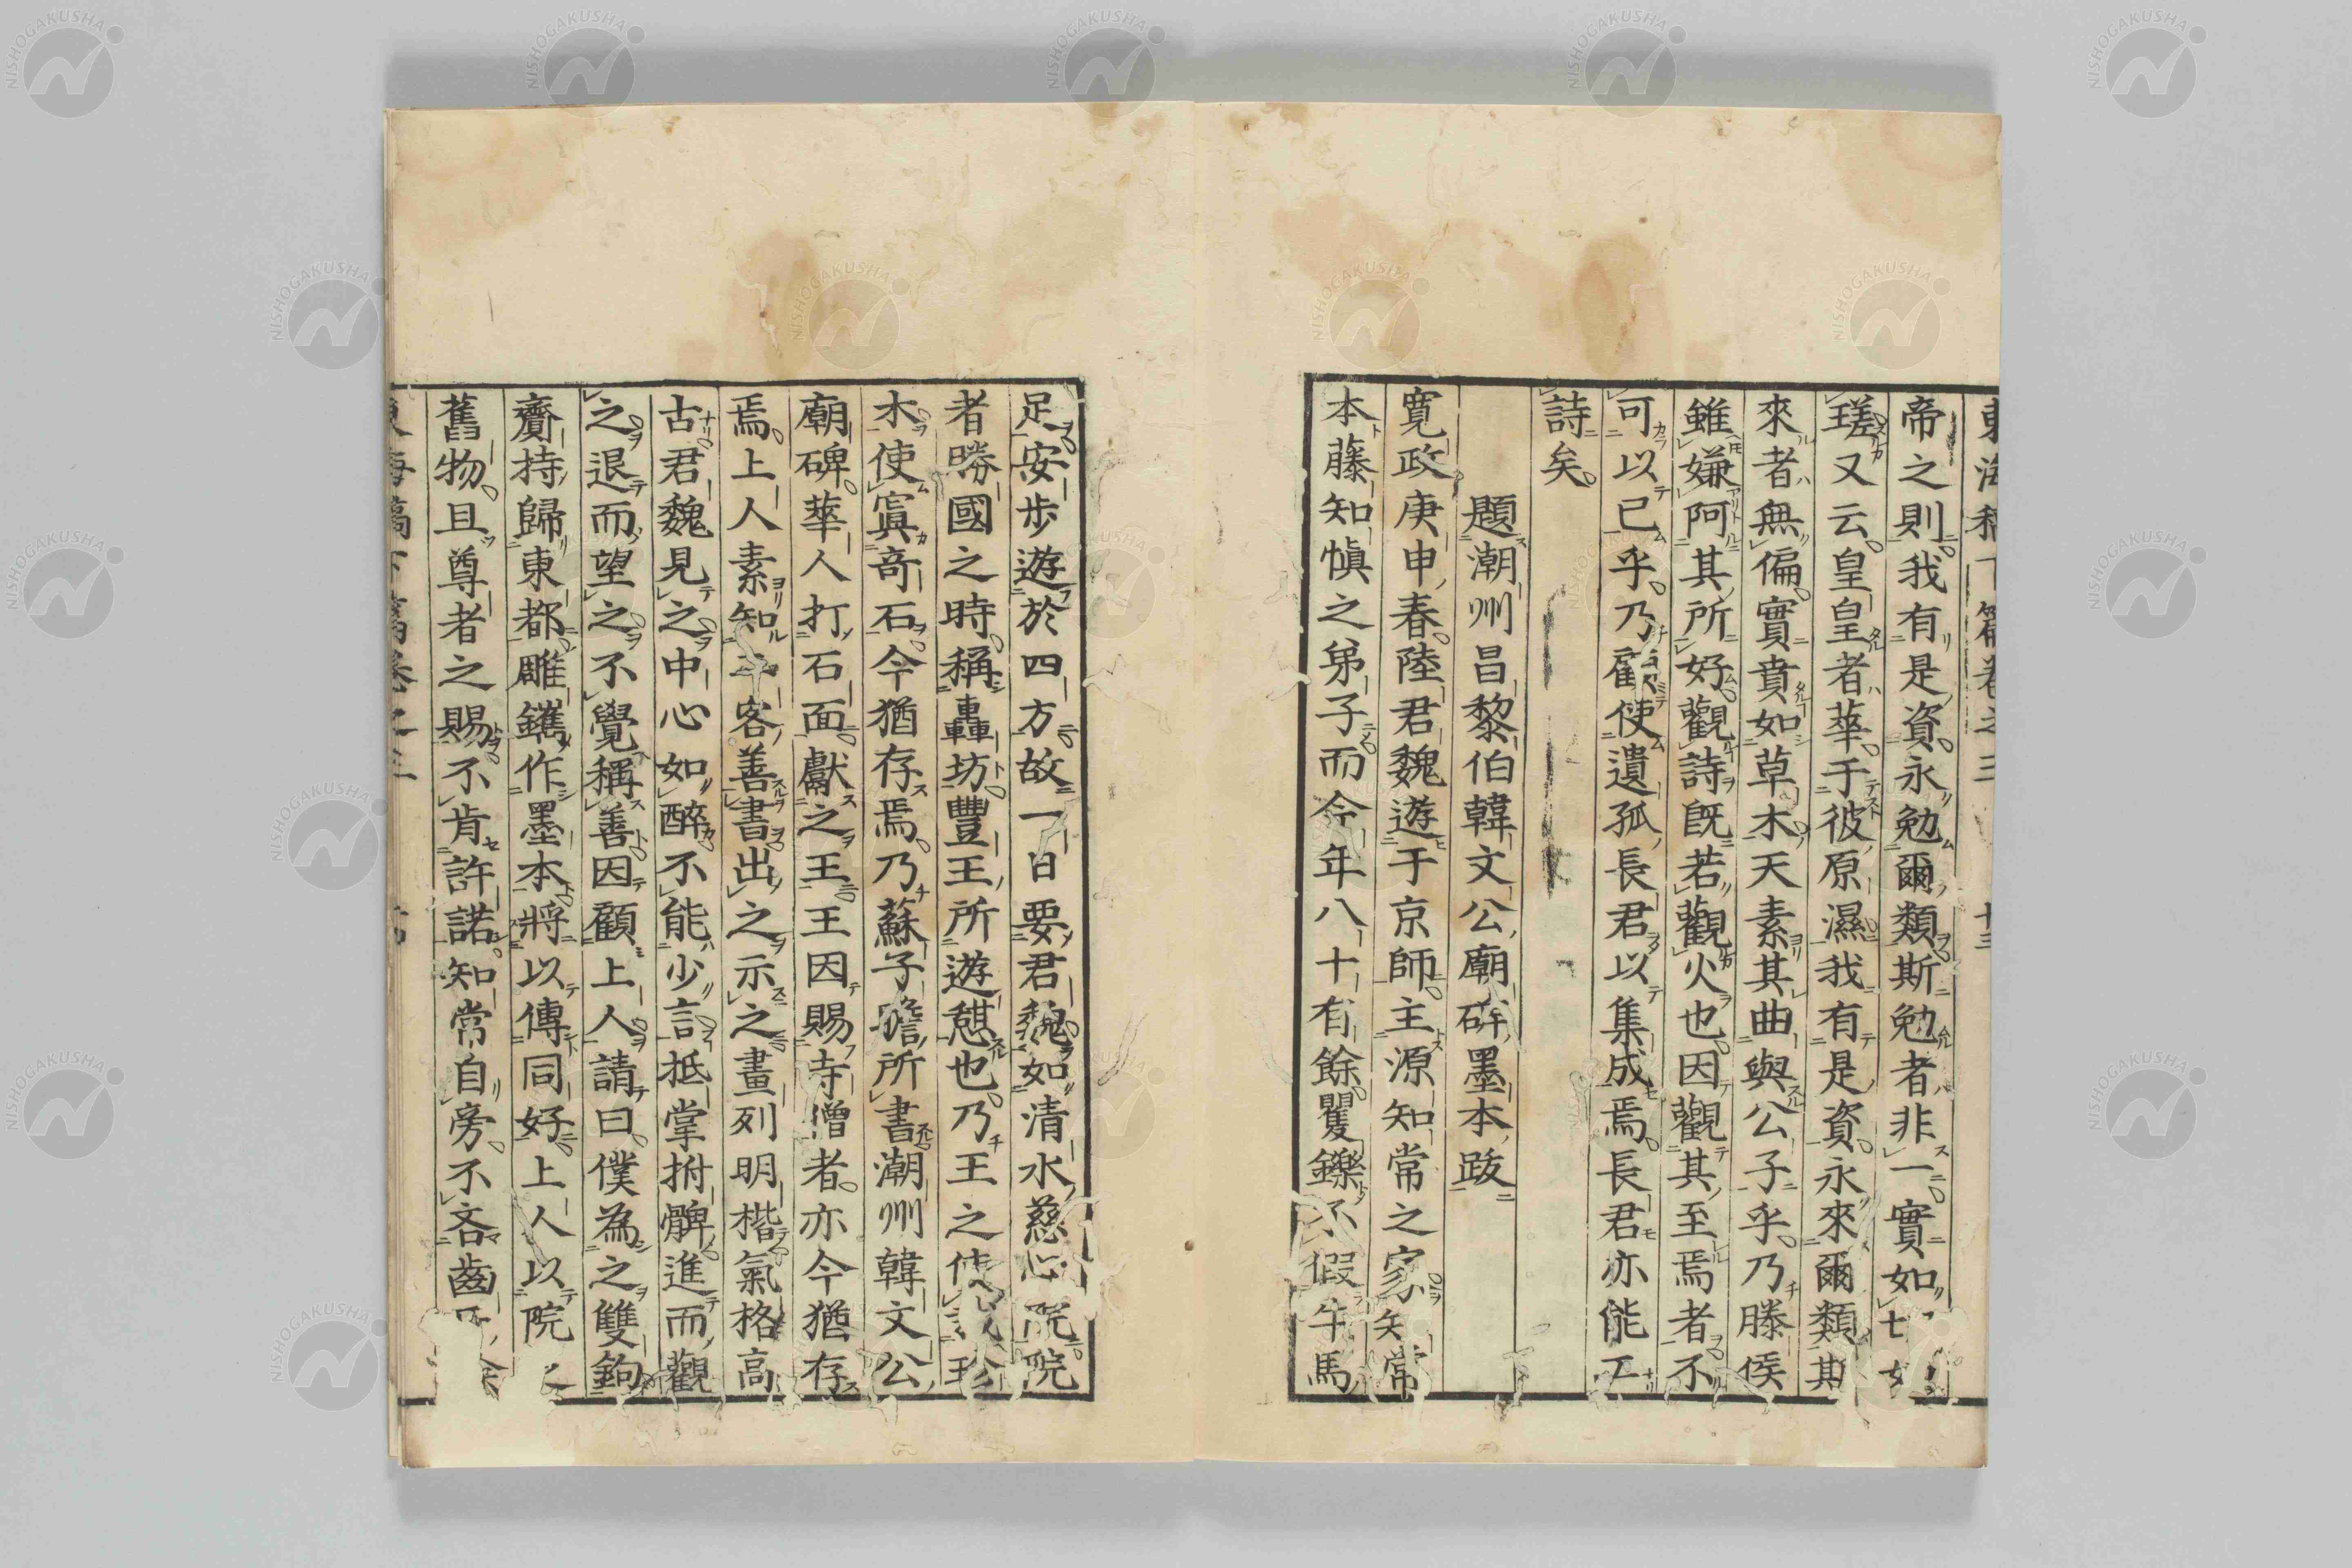 帝之則我有是資永勉爾類斯勉者非一實如
瑳又云皇皇者華于彼原濕我有是資永來爾類其
來者無偏實賁如草木天素其曲與公子乎乃滕侯
雖嫌阿其所好觀詩既若觀火也因觀其至焉者不
可以已乎乃顧使遺孤長君以集成焉長君亦能工
詩矣
題潮州昌黎伯韓文公廟碑墨本跋
寬政庚申春陸君魏遊于京師主源知常之家知常
本藤知愼之弟子而今年八十有餘矍鑠不假牛馬
足安步遊於四方故一日要君魏如清水慈心院院
者勝國之時稱轟坊豐王所遊憩也乃王之使珍
木使寘奇石今猶存焉乃蘇子瞻所書潮州韓文公
廟碑華人打石面獻之王王因賜寺僧者亦今猶存
焉上人素知客善書出之示之畫列明楷氣格高
古君魏見之中心如醉不能少言抵掌拊髀進而觀
之退而望之不覺稱善因顧上人請曰僕為之雙鉤
齎持歸東都雕鐫作墨本將以傳同好上人以院
舊物且尊者之賜不肯許諾知常自旁不吝齒
NISHOGAKUSHA